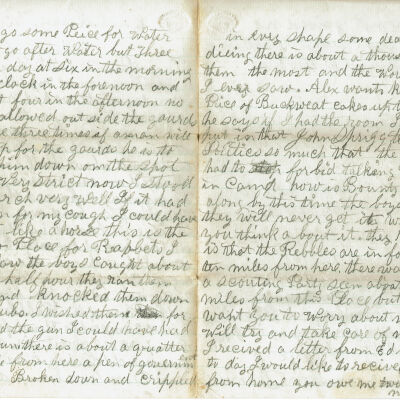 go some Peice for water
go after water but Three
day at Six in the morning
clock in the forenoon and
t four in the afternoon no
allowed out side the gaurd
e three times if a man will
p for the gaurde he is to
him down on the spot
very strict now I stood
arch very well if it had
n for my cough I could have
like a horse this is the
Place for Rabbets I
ow the boys caught about
half hour they ran them
nd knocked them down
ubs. I wished than for
d the gun I could have had
un there is about a quatter
e from here a pen of governm ent
Broken down and Crippled
in evry shape some dea
diing there is about a thous
them the most and the wor
I ever saw. Alex wants k
Peice of Buckweat cakes up t
he says if I had the room I
out is that John Sprigg
Politics so much that the
had to for bid talking
in Camp how is Bounty
a fong by this time the boys
they will never get it w
you think a bout it. they
is that the Rebbles are in fo
ten miles from here there wa
a scouting Party seen about
miles from this Place but
want you to worry about m
will try and take care of m
I recived a letter from Ed
to day I would like to recive
from home you owe me two